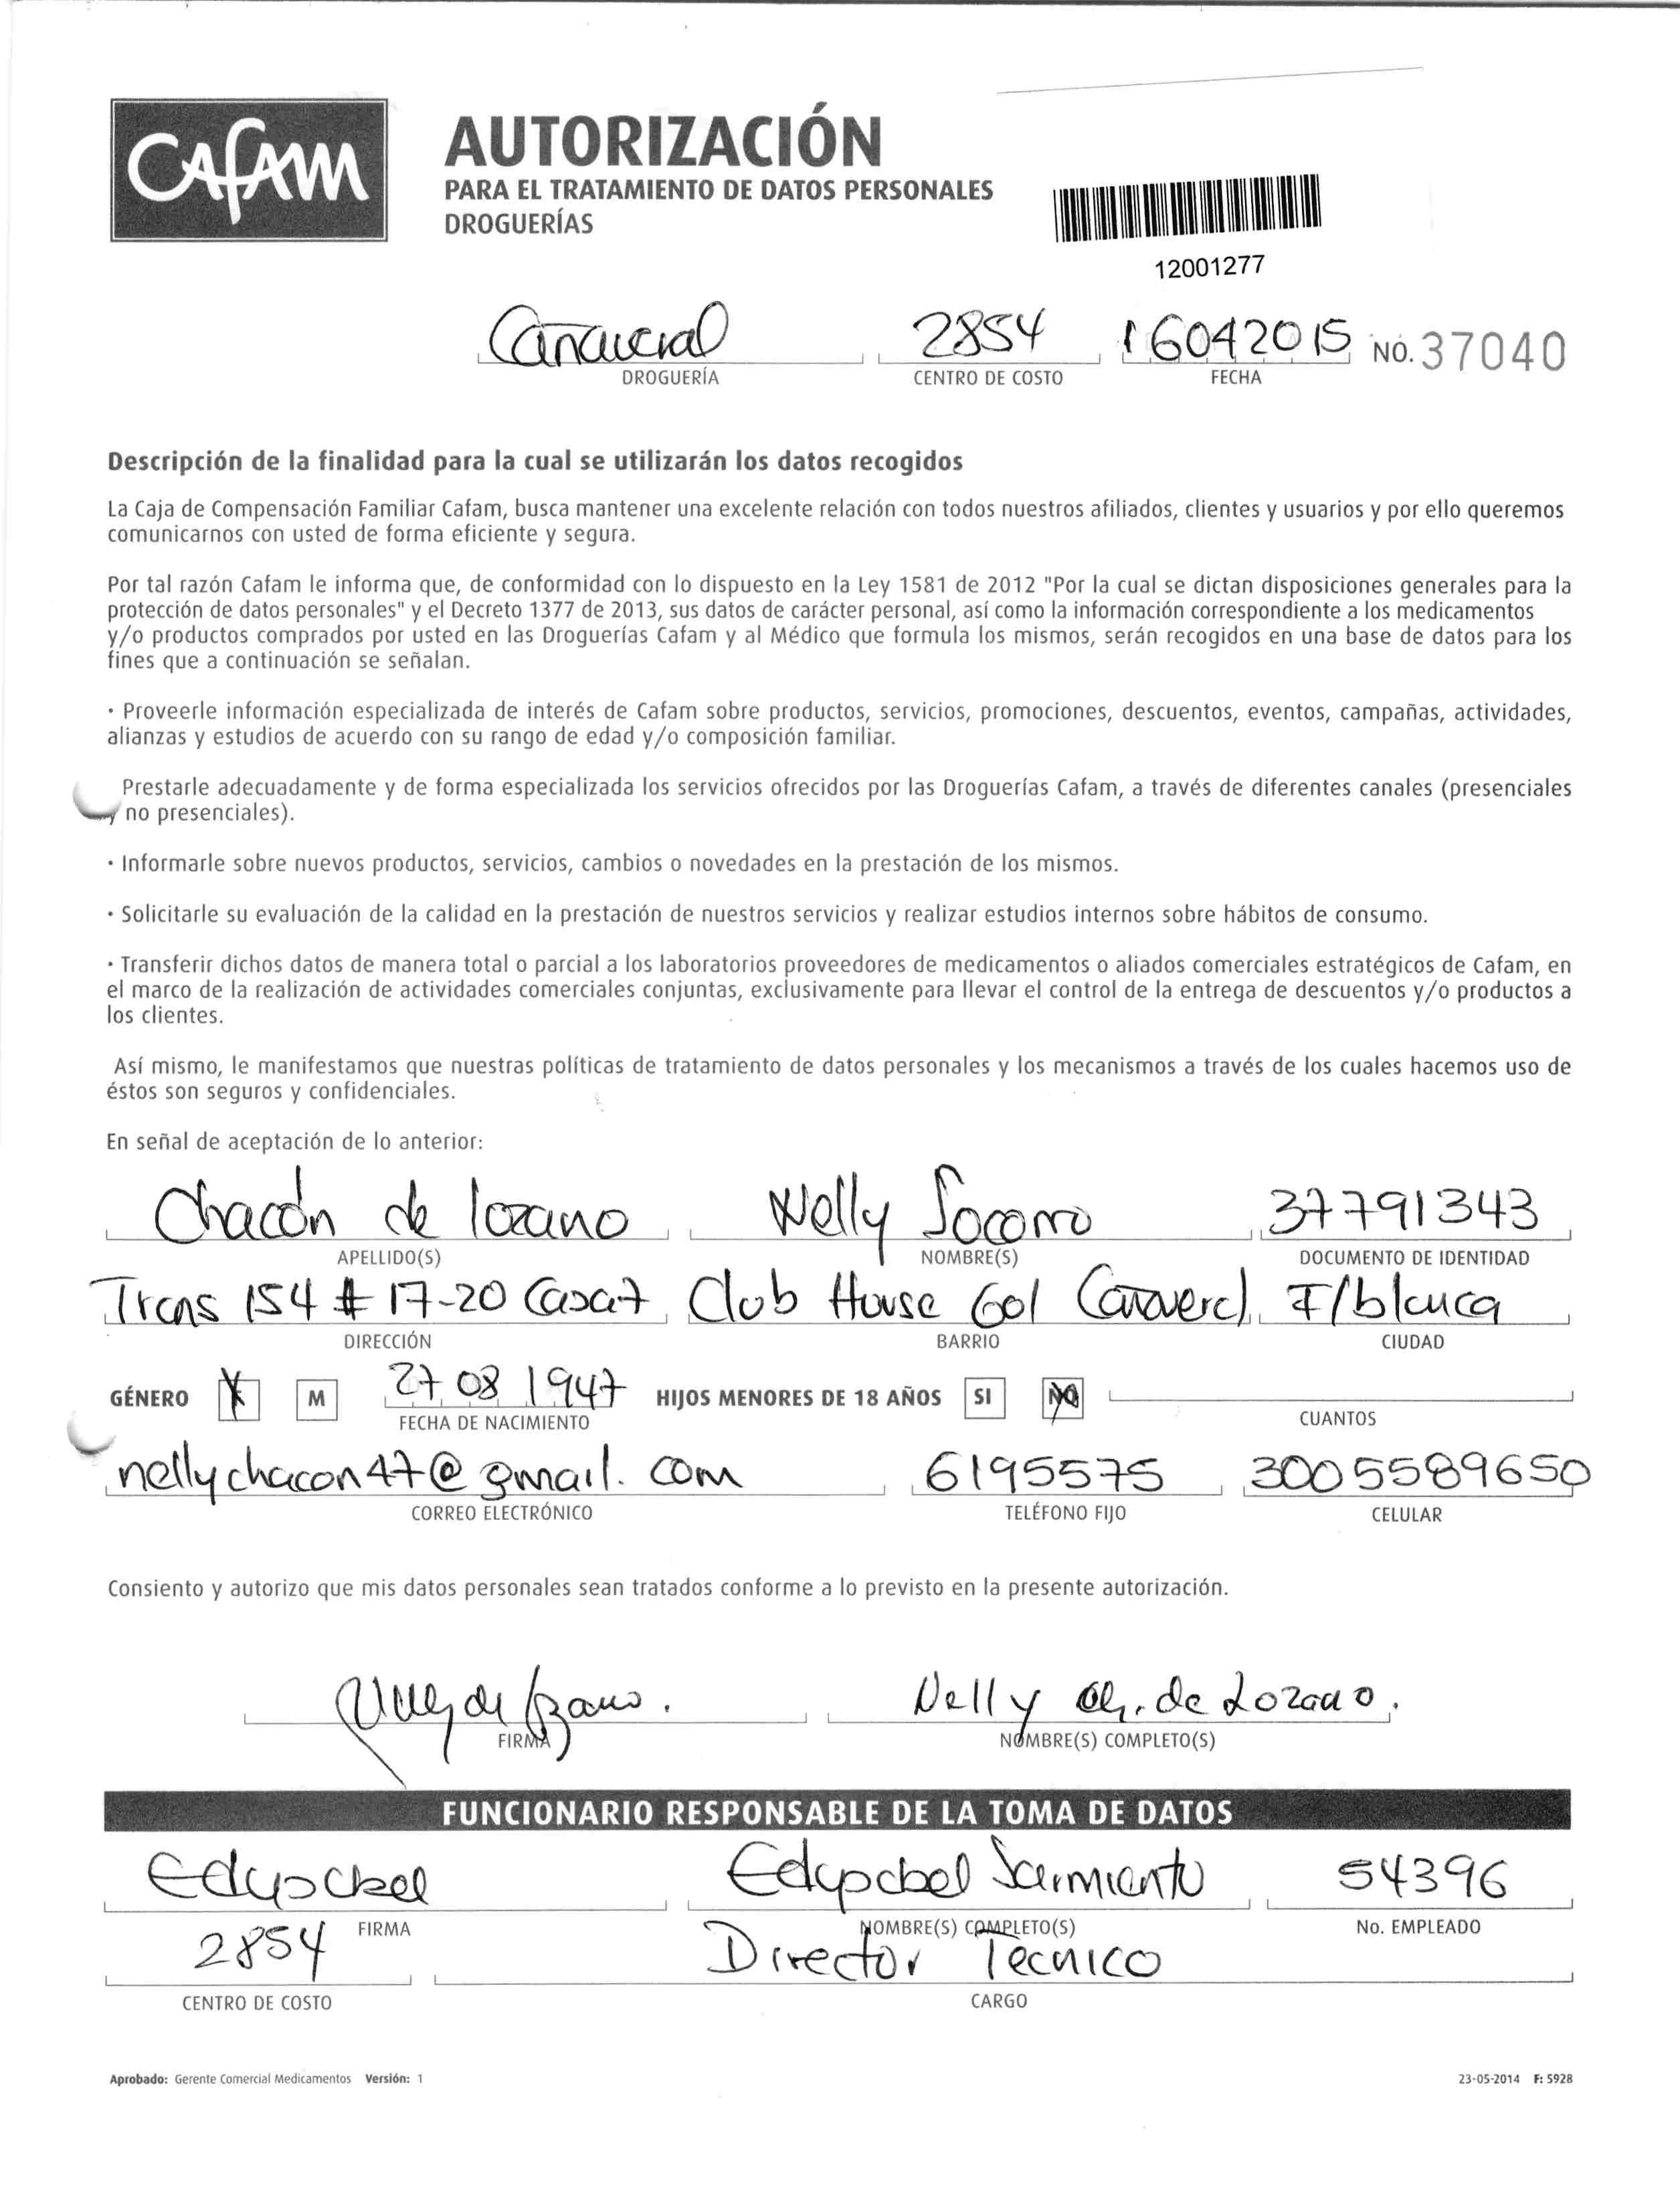 Cafam
AUTORIZACIÓN
PARA EL TRATAMIENTO DE DATOS PERSONALES
DROGUERÍAS
12001277
Cañaveral 2854 16042015 NO. 37040
DROGUERÍA CENTRO DE COSTO FECHA
Descripción de la finalidad para la cual se utilizarán los datos recogidos
La Caja de Compensación Familiar Cafam, busca mantener una excelente relación con todos nuestros afiliados, clientes y usuarios y por ello queremos
comunicarnos con usted de forma eficiente y segura.
Por tal razón Cafam le informa que, de conformidad con lo dispuesto en la Ley 1581 de 2012 "Por la cual se dictan disposiciones generales para la
protección de datos personales" y el Decreto 1377 de 2013, sus datos de carácter personal, así como la información correspondiente a los medicamentos
y/o productos comprados por usted en las Droguerías Cafam y al Médico que formula los mismos, serán recogidos en una base de datos para los
fines que a continuación se señalan.
· Proveerle información especializada de interés de Cafam sobre productos, servicios, promociones, descuentos, eventos, campañas, actividades,
alianzas y estudios de acuerdo con su rango de edad y/o composición familiar.
Prestarle adecuadamente y de forma especializada los servicios ofrecidos por las Droguerías Cafam, a través de diferentes canales (presenciales
y no presenciales).
· Informarle sobre nuevos productos, servicios, cambios o novedades en la prestación de los mismos.
· Solicitarle su evaluación de la calidad en la prestación de nuestros servicios y realizar estudios internos sobre hábitos de consumo.
· Transferir dichos datos de manera total o parcial a los laboratorios proveedores de medicamentos o aliados comerciales estratégicos de Cafam, en
el marco de la realización de actividades comerciales conjuntas, exclusivamente para llevar el control de la entrega de descuentos y/o productos a
los clientes.
Así mismo, le manifestamos que nuestras políticas de tratamiento de datos personales y los mecanismos a través de los cuales hacemos uso de
éstos son seguros y confidenciales.
En señal de aceptación de lo anterior:
Chacón de lozano Nelly Socorro 37791343
APELLIDO(S) NOMBRE(S) DOCUMENTO DE IDENTIDAD
Trans 154 # 17-20 Casa7 Club House Gol Cañaveral F/blanca
DIRECCIÓN BARRIO CIUDAD
GÉNERO X M 27 08 1947 HIJOS MENORES DE 18 AÑOS SI NO
FECHA DE NACIMIENTO CUANTOS
nellychacon47@gmail.com 6195575 3005589650
CORREO ELECTRÓNICO TELÉFONO FIJO CELULAR
Consiento y autorizo que mis datos personales sean tratados conforme a lo previsto en la presente autorización.
Nelly de Lozano. Nelly Ch. de Lozano.
FIRMA NOMBRE(S) COMPLETO(S)
FUNCIONARIO RESPONSABLE DE LA TOMA DE DATOS
Sarmiento 54396
FIRMA NOMBRE(S) COMPLETO(S) No. EMPLEADO
2854 Director Tecnico
CENTRO DE COSTO CARGO
Aprobado: Gerente Comercial Medicamentos Versión: 1 23-05-2014 F: 5928